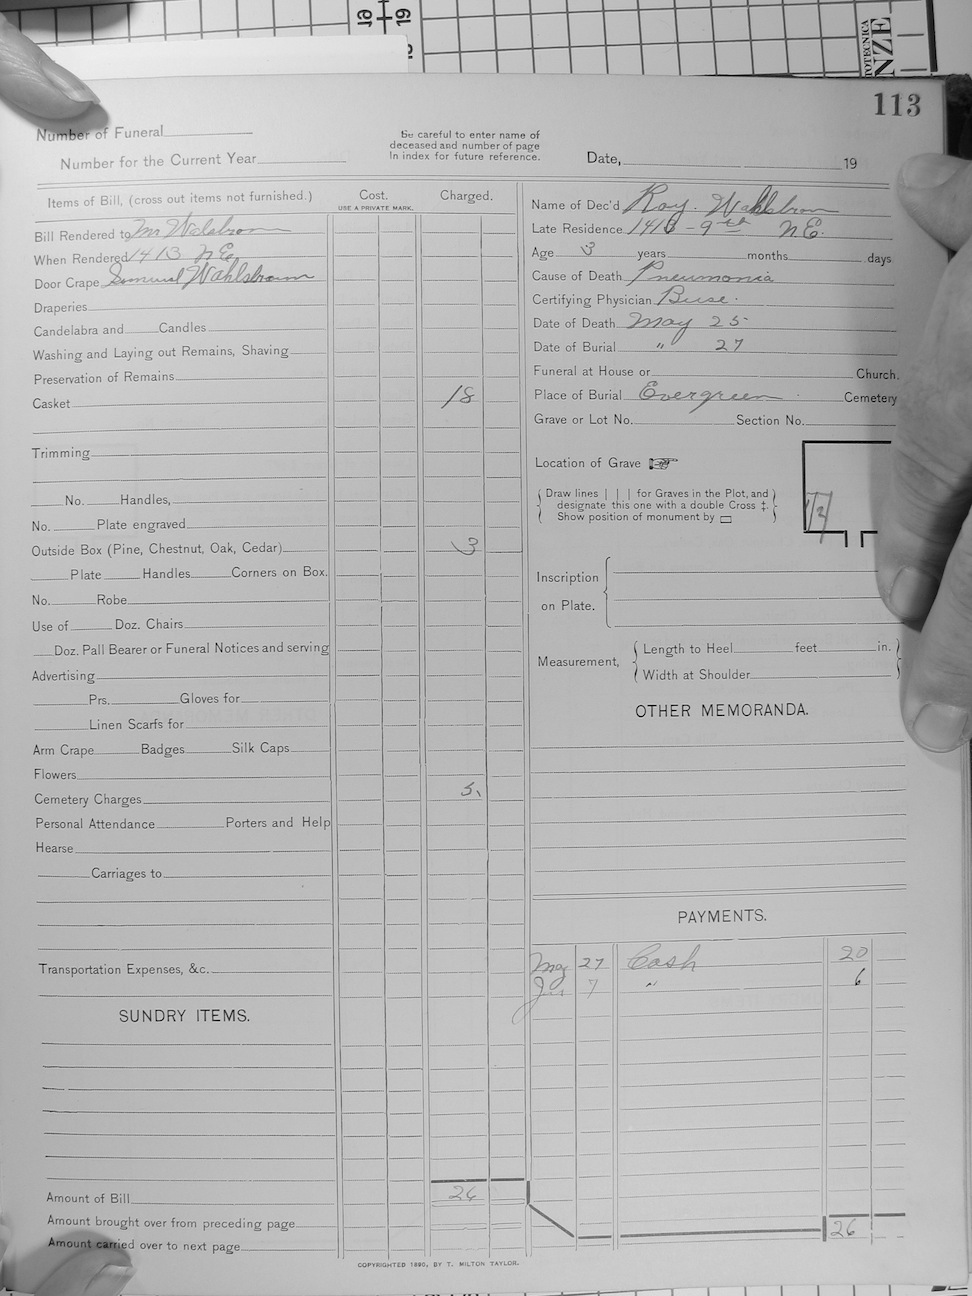 113
Number of Funeral
Number for the Current Year
Be careful to enter name of
deceased and number of page
in index for future reference.
Date, 19
Items of Bill, (cross out items not furnished.)
Cost.
USE A PRIVATE MARK.
Charged.
Bill Rendered to Mr Walstrom
When Rendered 1413 N.E.
Door Crape Samuel Wahlstrom
Draperies
Candelabra and Candles
Washing and Laying out Remains, Shaving
Preservation of Remains
Casket 18
Trimming
No. Handles,
No. Plate engraved
Outside Box (Pine, Chestnut, Oak, Cedar) 3
Plate Handles Corners on Box.
No. Robe
Use of Doz. Chairs
Doz. Pall Bearer or Funeral Notices and serving
Advertising
Prs. Gloves for
Linen Scarfs for
Arm Crape Badges Silk Caps
Flowers
Cemetery Charges 5.
Personal Attendance Porters and Help
Hearse
Carriages to
Transportation Expenses, &c.
SUNDRY ITEMS.
Amount of Bill 26
Amount brought over from preceding page
Amount carried over to next page
Name of Dec'd Roy. Wahlstrom
Late Residence 1413 - 9th N.E.
Age 3 years months days
Cause of Death Pneumonia
Certifying Physician Buse.
Date of Death May 25
Date of Burial " 27
Funeral at House or Church.
Place of Burial Evergreen Cemetery
Grave or Lot No. Section No.
Location of Grave
Draw lines | | | for Graves in the Plot, and
designate this one with a double Cross ‡.
Show position of monument by ▭
Inscription
on Plate.
Measurement,
Length to Heel feet in.
Width at Shoulder
OTHER MEMORANDA.
PAYMENTS.
May 27 Cash 20
Jun 7 " 6
26
COPYRIGHTED 1890, BY T. MILTON TAYLOR.